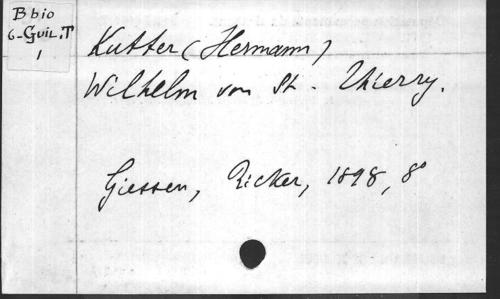 B bio
6-GUIL.T
1
Kutter (Hermann)
Wilhelm von St. Thierry.
Giessen, Ricker, 1898, 8°